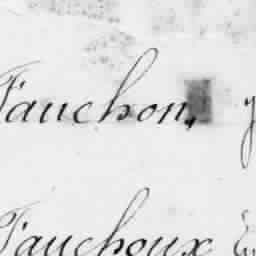 Fauchon,
Fauchoux